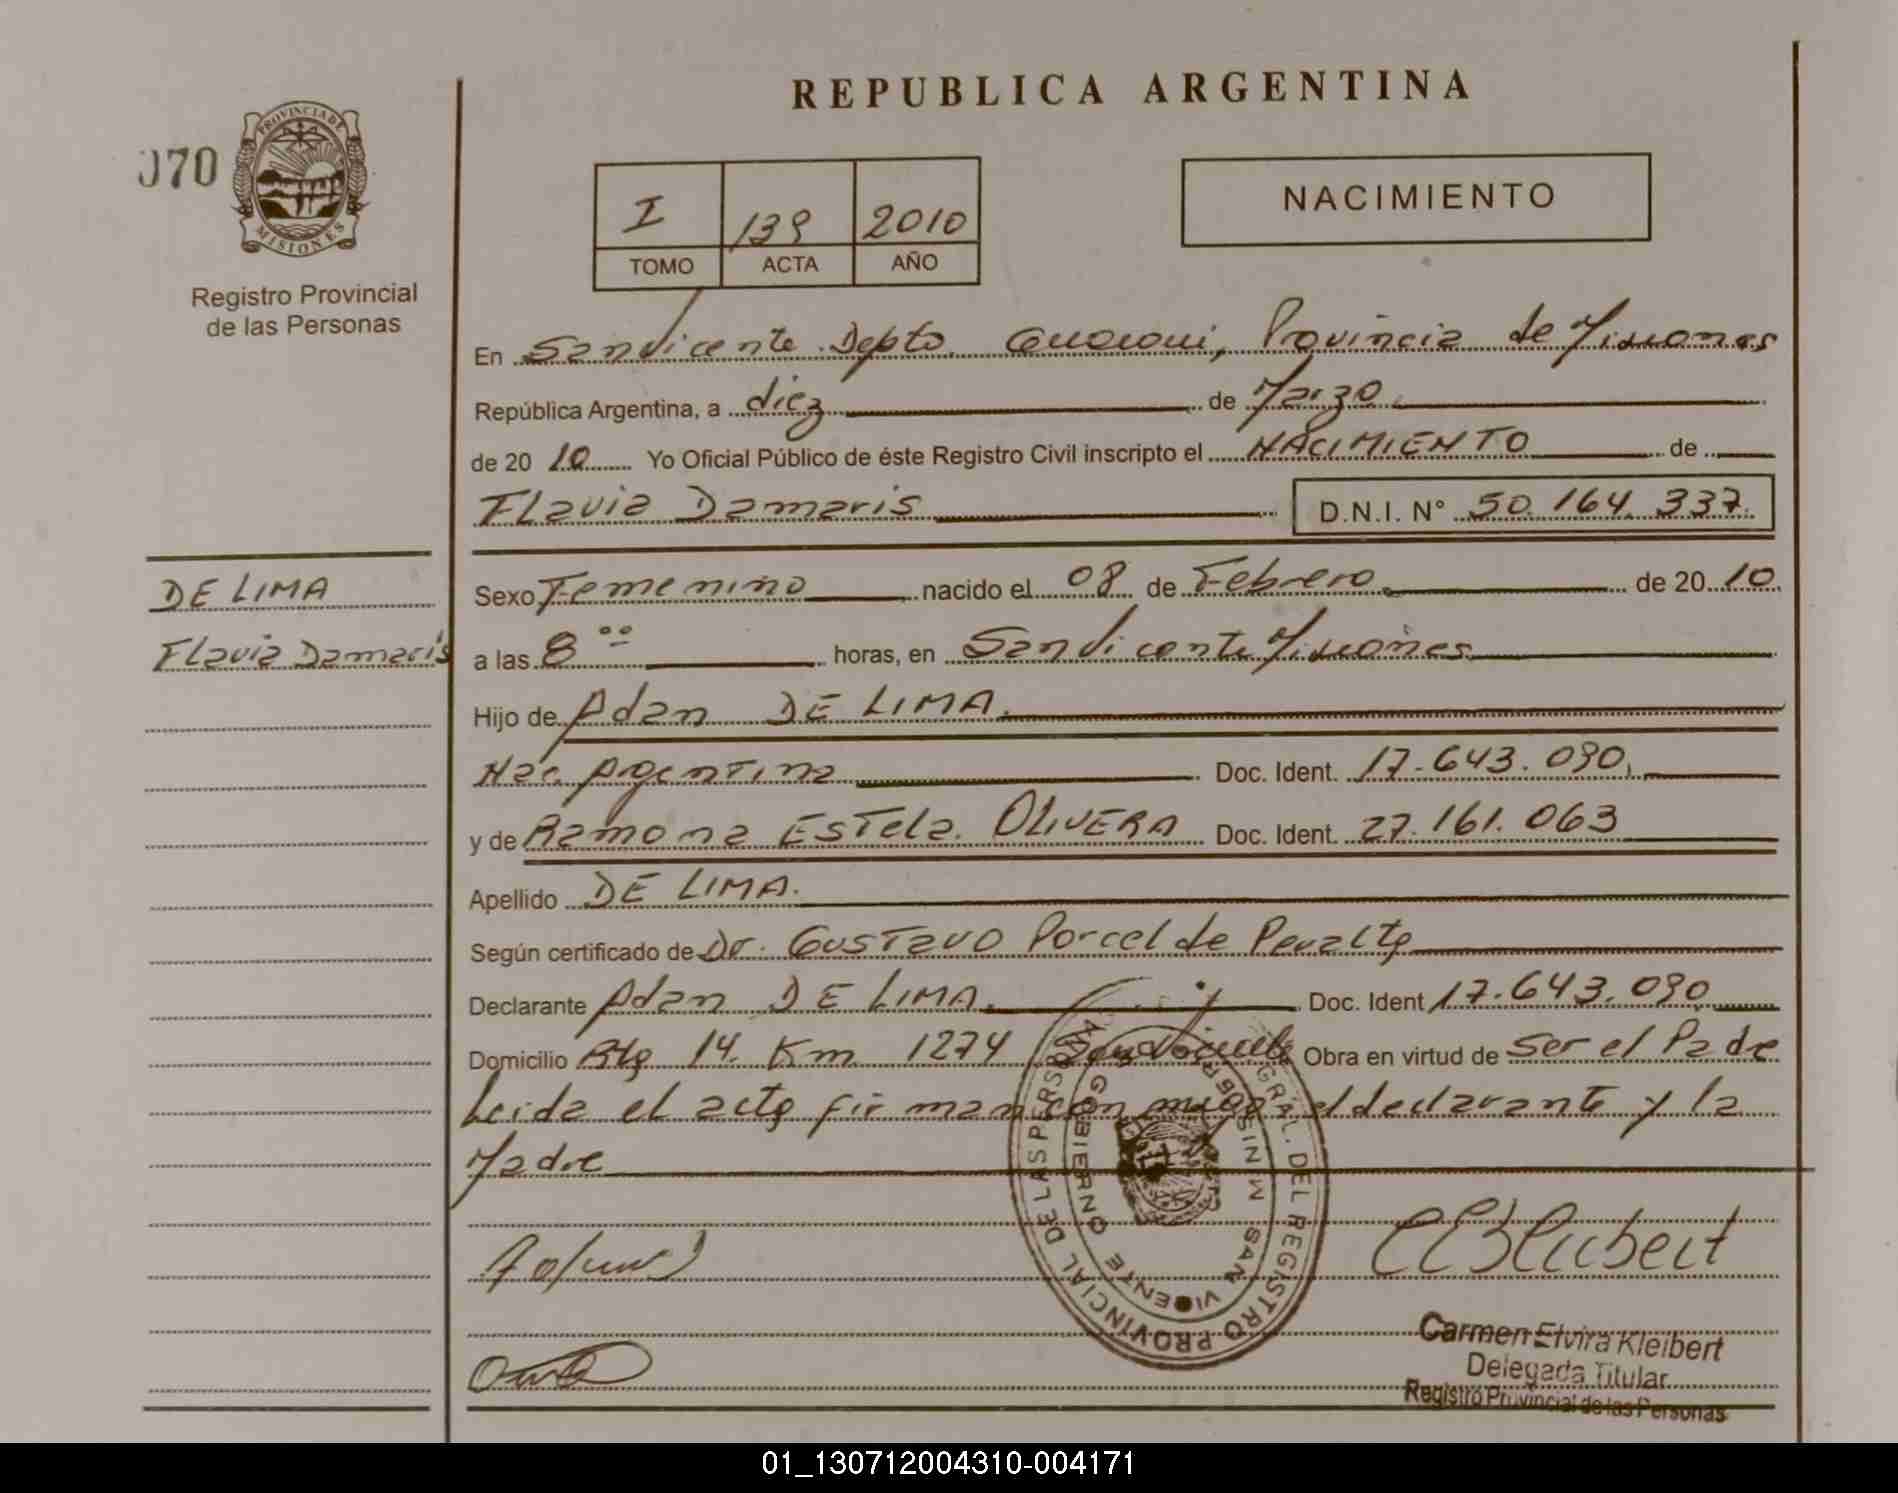 REPUBLICA ARGENTINA
070
PROVINCIA DE
MISIONES
Registro Provincial
de las Personas
I 139 2010
TOMO ACTA AÑO
NACIMIENTO
En San Vicente Depto. Guarani, Provincia de Misiones
República Argentina, a diez de Marzo
de 20 10 Yo Oficial Público de éste Registro Civil inscripto el NACIMIENTO de
Flavia Damaris D.N.I. N° 50.164.337.
DE LIMA
Flavia Damaris
Sexo Femenino nacido el 08 de Febrero de 20 10
a las 8 00 horas, en San Vicente Misiones
Hijo de Adan DE LIMA.
Nac. Argentina Doc. Ident. 17.643.090
y de Ramona Estela OLIVERA Doc. Ident. 27.161.063
Apellido DE LIMA.
Según certificado de Dr. Gustavo Porcel de Peralta
Declarante Adan DE LIMA. Doc. Ident 17.643.090
Domicilio Rta 14. Km 1274 San Vicente Obra en virtud de Ser el Padre
Leida el acta firman con migo el declarante y la
Madre
GRAL. DEL REGISTRO PROVINCIAL DE LAS PERSONAS
GOBIERNO
SAN VICENTE
Carmen Elvira Kleibert
Delegada Titular
Registro Provincial de las Personas
01_130712004310-004171